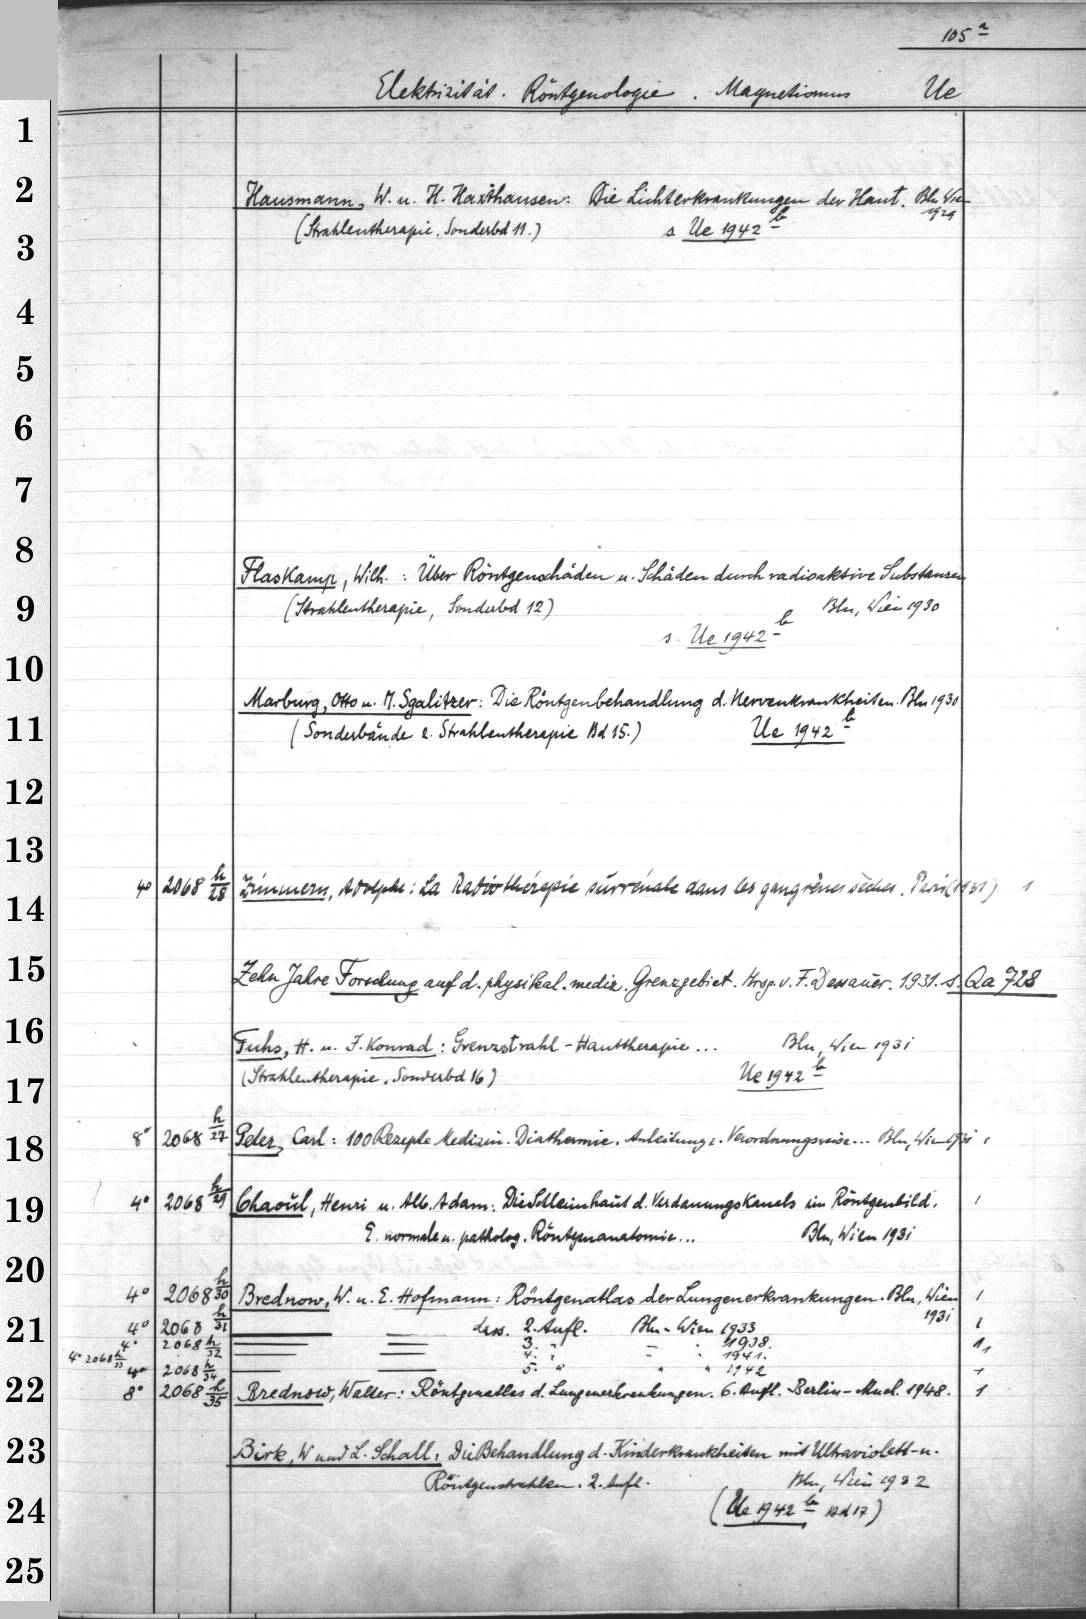 105 a
Elektrizität. Röntgenologie. Magnetismus Ue
1
2 Hausmann, W. u. H. Haxthausen: Die Lichterkrankungen der Haut. Bln Wien 1929
3 (Strahlentherapie. Sonderbd 11.) s. Ue 1942 b
4
5
6
7
8 Flaskamp, Wilh. : Über Röntgenschäden u. Schäden durch radioaktive Substanzen
9 (Strahlentherapie, Sonderbd 12) Bln, Wien 1930
s. Ue 1942 b
10
Marburg, Otto u. M. Sgalitzer: Die Röntgenbehandlung d. Nervenkrankheiten. Bln 1930
11 (Sonderbände z. Strahlentherapie Bd 15.) Ue 1942 b
12
13
4° 2068 h/28 Zimmern, Adolphe: La Radiothérapie surrénale dans les gangrènes sèches. Paris (1931) 1
14
15 Zehn Jahre Forschung auf d. physikal. mediz. Grenzgebiet. Hrsg. v. F. Dessauer. 1931. s. Qa 728
16 Fuhs, H. u. J. Konrad: Grenzstrahl-Hauttherapie ... Bln, Wien 1931
17 (Strahlentherapie. Sonderbd 16) Ue 1942 b
18 8° 2068 h/27 Peter, Carl: 100 Rezepte Medizin. Diathermie. Anleitung z. Verordnungsweise... Bln, Wien 1931 1
19 4° 2068 h/29 Chaoul, Henri u. Alb. Adam: Die Schleimhaut d. Verdauungskanals im Röntgenbild. 1
E. normale u. patholog. Röntgenanatomie... Bln, Wien 1931
20
4° 2068 h/30 Brednow, W. u. E. Hofmann: Röntgenatlas der Lungenerkrankungen. Bln, Wien 1931 1
21 4° 2068 h/31 — — dass. 2. Aufl. Bln-Wien 1933 1
4° 2068 h/32 — — 3. " — " 1938. 1
4° 2068 h/33 — — 4. " 1941. 1
4° 2068 h/34 — — 5. " " " 1942 1
22 8° 2068 h/35 Brednow, Walter: Röntgenatlas d. Lungenerkrankungen. 6. Aufl. Berlin-Mchn. 1948. 1
23 Birk, W und L. Schall: Die Behandlung d. Kinderkrankheiten mit Ultraviolett- u.
Röntgenstrahlen. 2. Aufl. Bln, Wien 1932
24 (Ue 1942 b Bd 17)
25